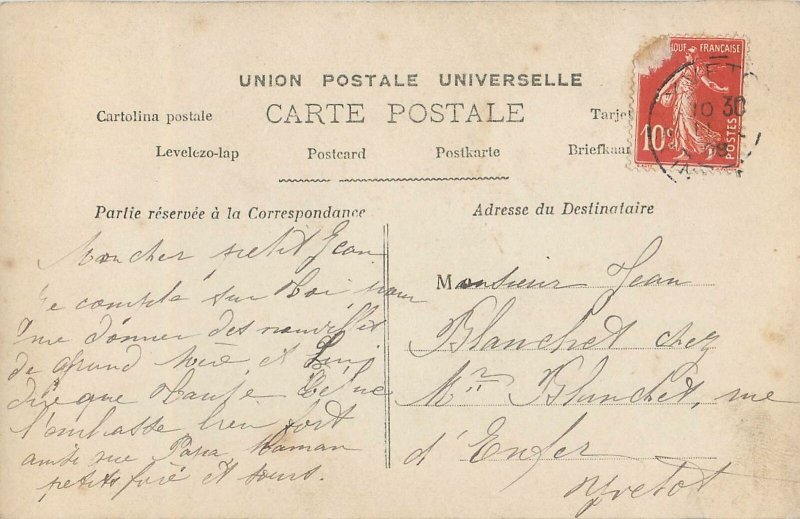 UNION POSTALE UNIVERSELLE
CARTE POSTALE
Cartolina postale
Levelezo-lap Postcard Postkarte Briefkaar
Tarje
Partie réservée à la Correspondance
Adresse du Destinataire
FRANÇAISE
10c
POSTES
10 30
08
Mon cher petit Jean
Je compte sur toi pour
me donner des nouvelles
de grand mère et
que tante
l'embrasse bien fort
ainsi que Papa Maman
petits et
Monsieur Jean
Blanchet chez
Mr Blanchet, rue
d'Enfer
Yvetot